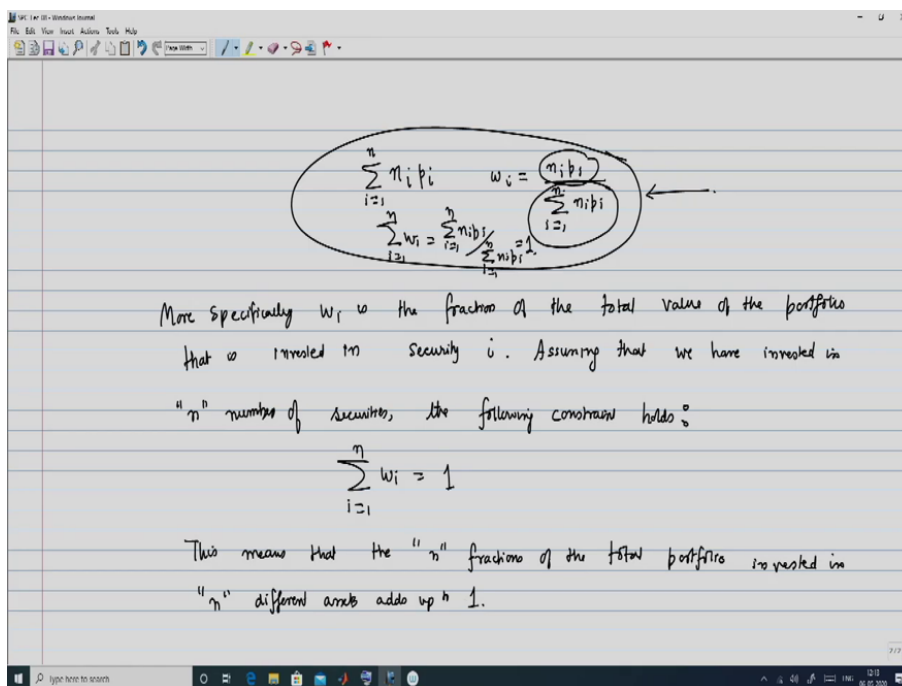 SPC Lec 08 - Windows Journal
File Edit View Insert Actions Tools Help
Page Width
n ∑ i=1 n_i p_i w_i = n_i p_i / n ∑ i=1 n_i p_i
n ∑ i=1 w_i = n ∑ i=1 n_i p_i / n ∑ i=1 n_i p_i = 1.
More specifically w_i is the fraction of the total value of the portfolio
that is invested in security i. Assuming that we have invested in
"n" number of securities, the following constraint holds:
n ∑ i=1 w_i = 1
This means that the "n" fractions of the total portfolio invested in
"n" different assets adds up to 1.
2/2
Type here to search
ENG
12:13
06-05-2020